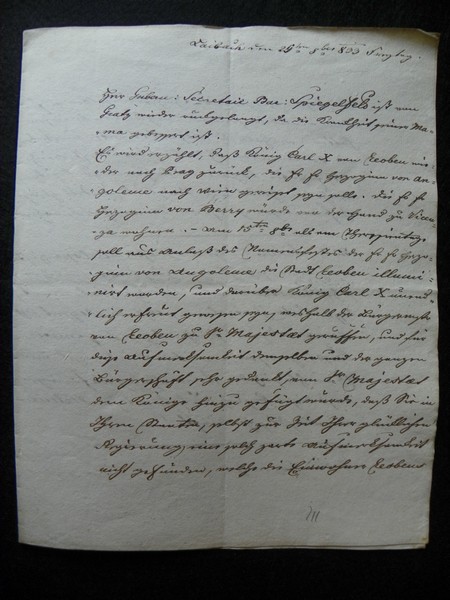 Laibach den 19ten 8ber 833 Samstag.
Herr Gubern: Secretair Bar: Spiegelfeld ist von
Gratz wieder zurückgelangt, da die Krankheit seiner Ma-
ma gebessert ist.
Es wird erzählt, daß König Carl X von Leoben wie-
der nach Prag zurück, die Fr Fr Herzoginn von An-
goleme nach Wien gereiset seyn solle. Die Fr Fr
Herzoginn von Berry würde vor der Hand zu
wohnen. – Am 15ten 8ber als am Theresientage
soll aus Anlaß des Namensfestes der Fr Fr Herzo-
ginn von Angoleme die Stadt Leoben illumi-
nirt worden, und darüber König Carl X unend-
lich erfreut gewesen seyn, weßhalb der Bürgermstr
von Leoben zu Sr Majestaet gerufen, und für
diese Aufmerksamkeit demselben und der ganzen
Bürgerschaft sehr gedankt, von Sr Majestaet
dem Könige hinzu gefügt wurde, daß Sie in
Ihren Staaten, selbst zur Zeit Ihrer glücklichen
Regierung, eine solch zarte Aufmerksamkeit
nicht gefunden, welche die Einwohner Leobens